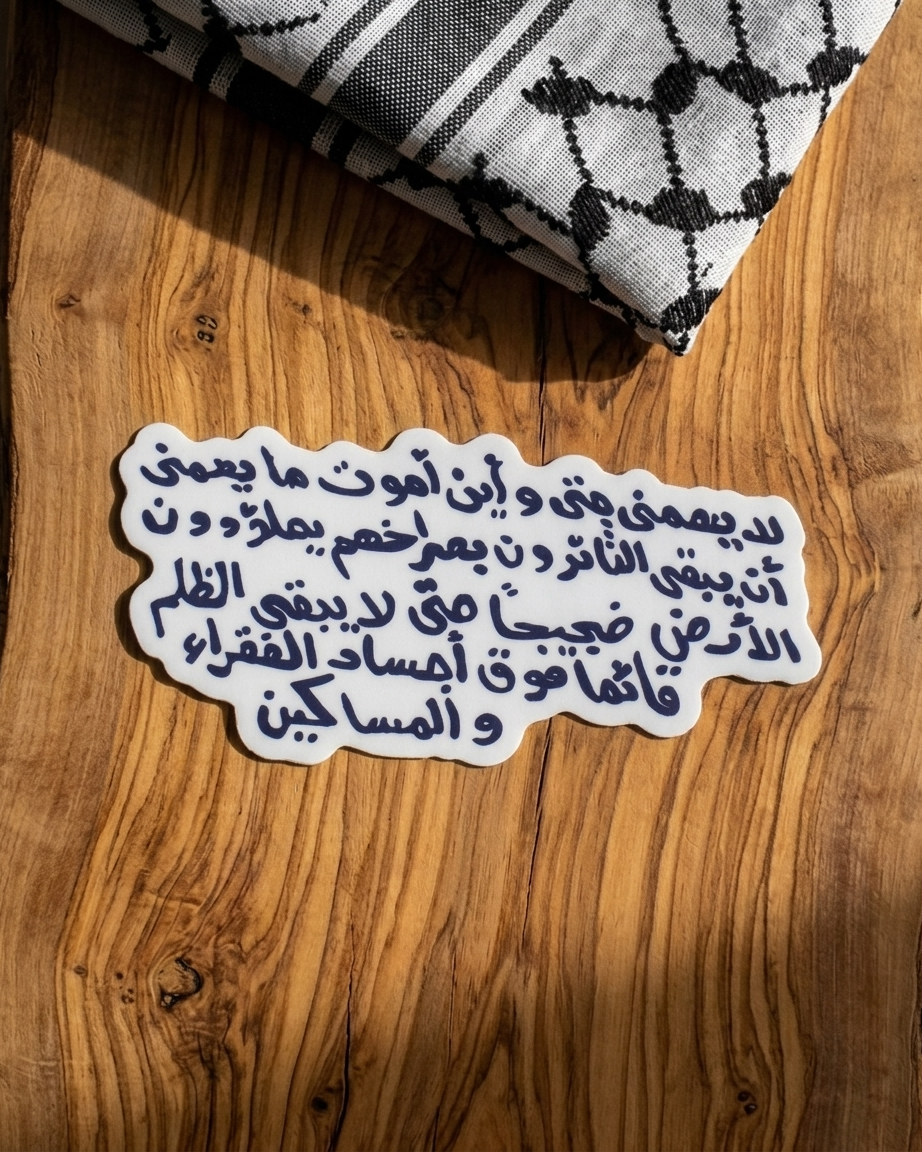 لا يهمني متى و أين أموت ما يهمني
أن يبقى الثائرون بصراخهم يملؤون
الأرض ضجيجاً حتى لا يبقى الظلم
قائما فوق أجساد الفقراء
و المساكين